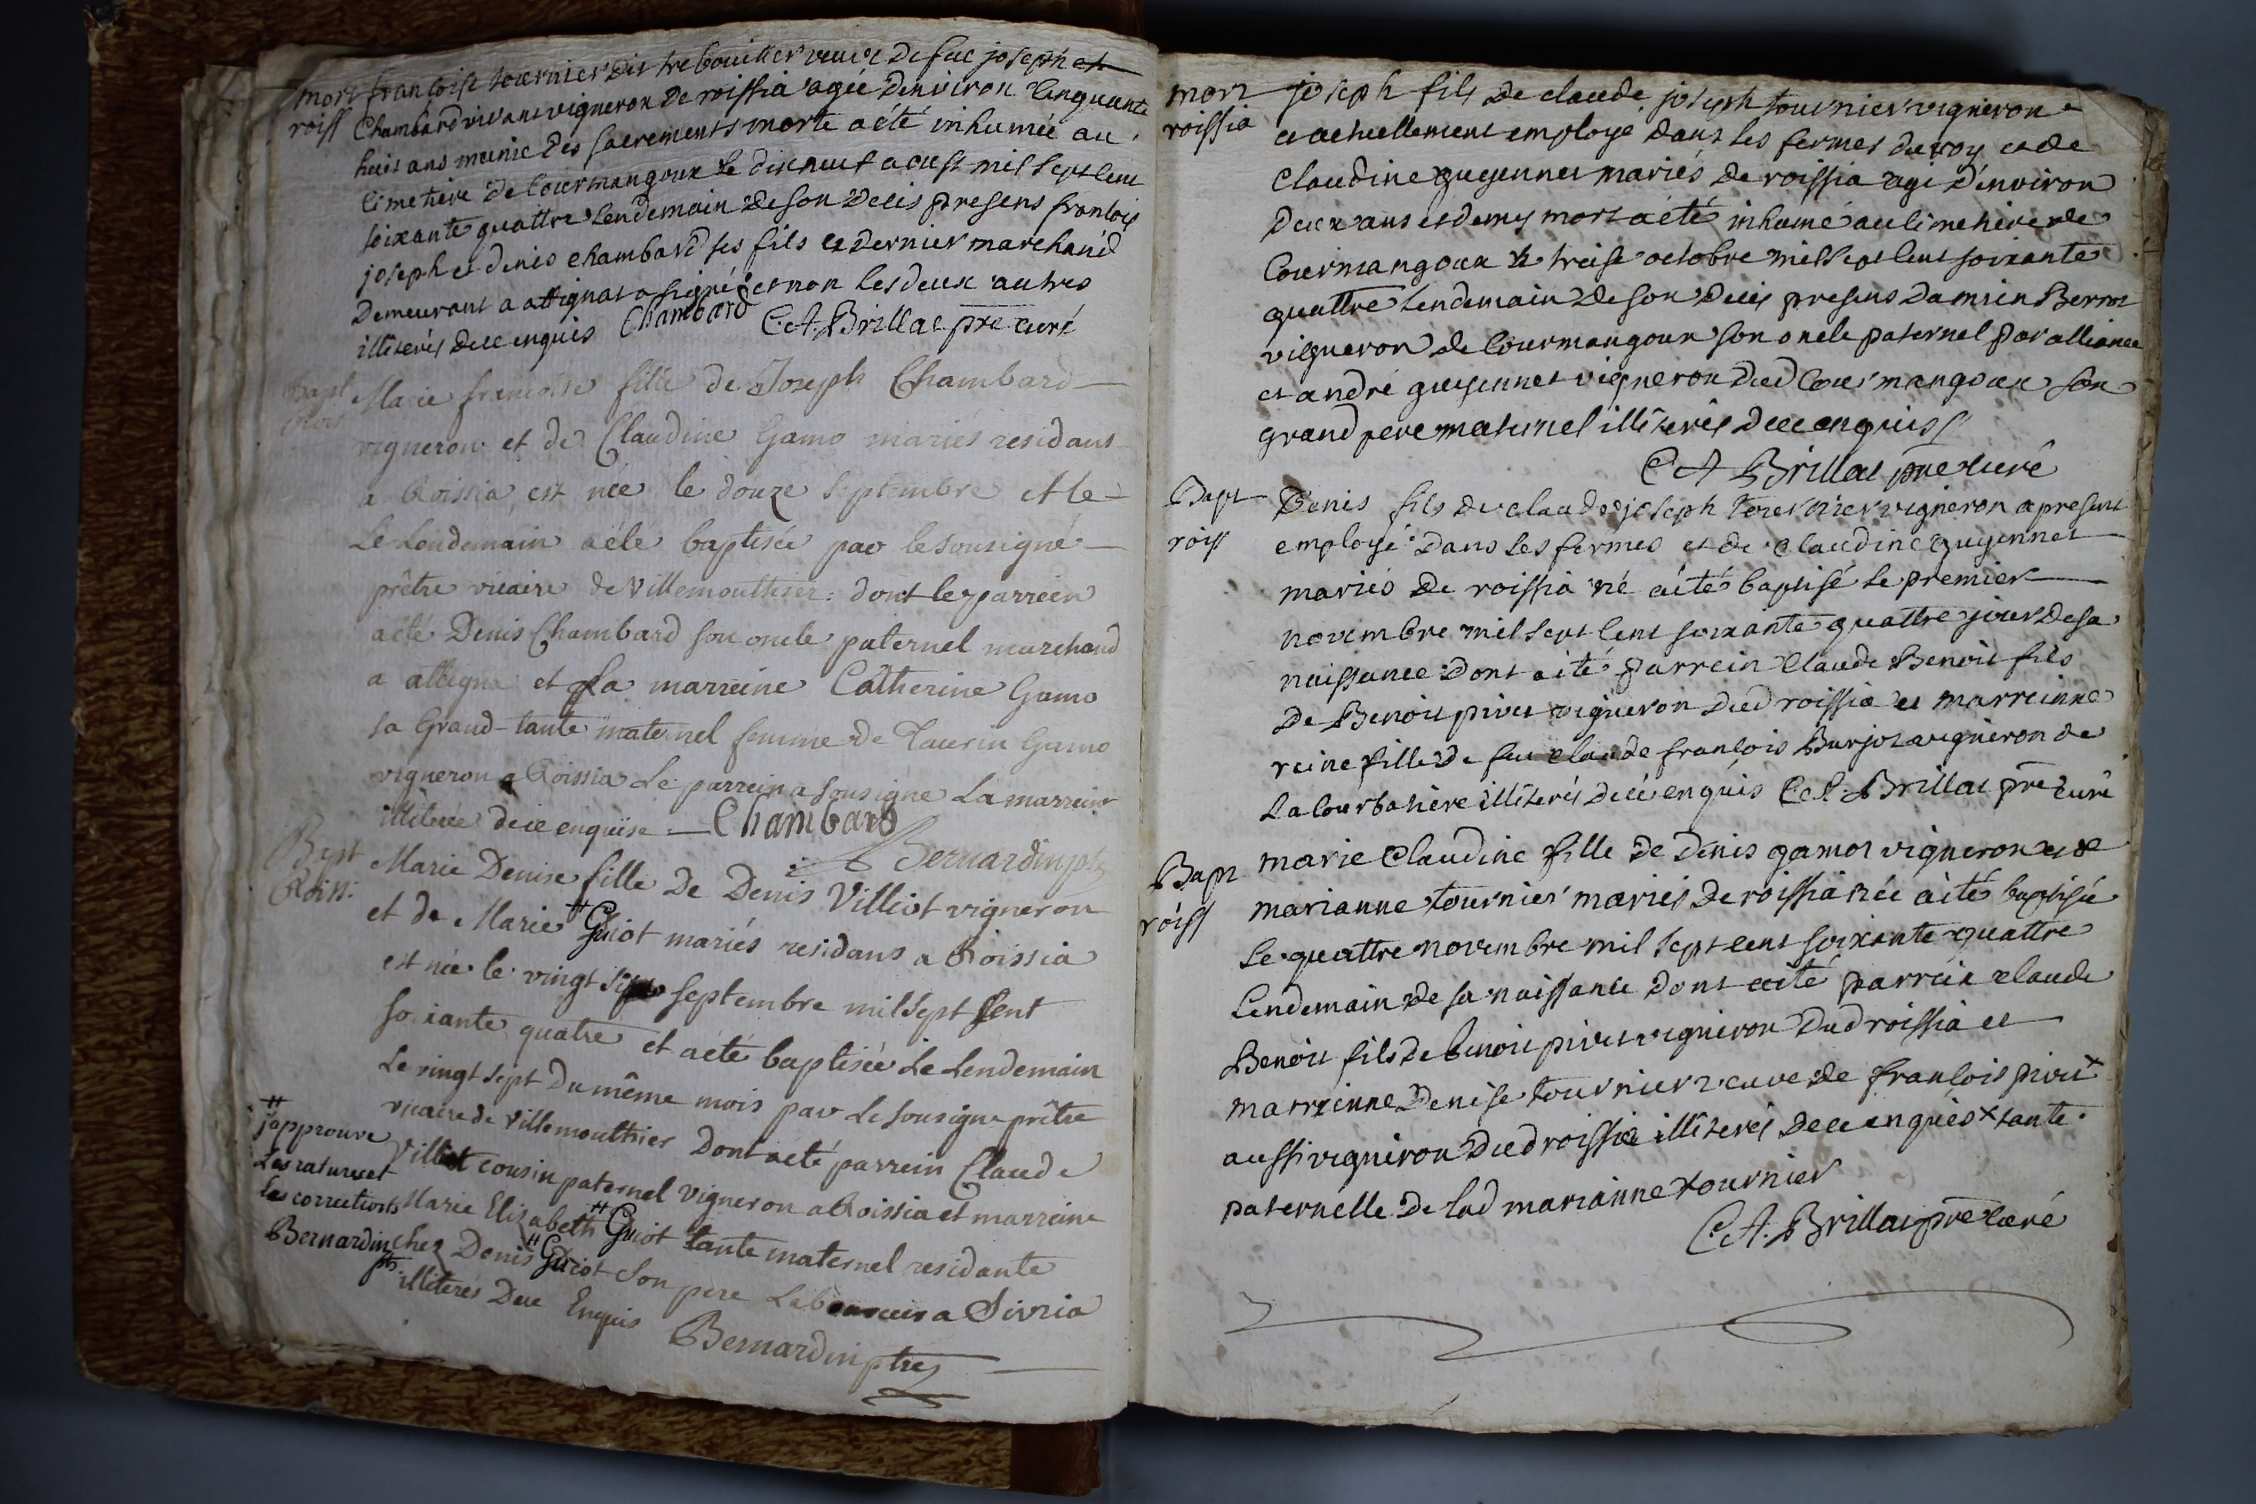 mort françoise tournier dit trebouillet veuve de feu joseph et
roiss Chambard vivant vigneron de roissia agée d'environ cinquante
huit ans munie des sacrements morte a été inhumée au
cimetiere de Courmangoux le dix neuf aoust mil sept cent
soixante quattre lendemain de son décès presens françois
joseph et denis chambard ses fils ce dernier marchand
demeurant a attignat a signé et non les deux autres
illiterés de ce enquis Chambard C.A. Brillat pre curé
Bapt Marie françoise fille de Joseph Chambard
Rois vigneron et de Claudine Gamo mariés residans
a Roissia est née le douze septembre et le
le lendemain a été baptisée par le sousigné
prêtre vicaire de Villemouthier : dont le parrein
a été Denis Chambard son oncle paternel marchand
a attigna et la marreine Catherine Gamo
sa Grand-tante maternel femme de Taurin Gamo
vigneron a Roissia Le parrein a sousigne La marreine
illiterée de ce enquise Chambard
Bernardin ptre
Bapt Marie Denise fille de Denis Villiot vigneron
Roiss. et de Marie # Guiot mariés residans a Roissia
est née le vingt six septembre mil sept cent
soixante quatre et a été baptisée Le Lendemain
Le vingt sept du même mois par Le sousigne prêtre
vicaire de Villemouthier Dont a été parrein Claude
Villiot cousin paternel vigneron a Roissia et marreine
Marie Elizabeth # Guiot tante maternel residante
chez Denis # Guiot son pere Laboureur a Sivria
illiterés De ce Enquis
Bernardin ptre
# j'approuve
Les ratures et
Les corrections
Bernardin
ptre
mort joseph fils de claude joseph tournier vigneron
roissia et actuellement employé dans les fermes du roy et de
claudine guyennet mariés de roissia agé d'environ
deux ans et demy mort a été inhumé au cimetiere de
Courmangoux le treise octobre mil sept cent soixante
quattre lendemain de son décès presens Damien Bernot
vigneron de Courmangoux son oncle paternel par alliance
et andré guyennet vigneron dud Courmangoux son
grand pere maternel illiterés de ce enquis
C A Brillat pre curé
Bapt Denis fils de claude joseph tournier vigneron a present
roiss employé dans les fermes et de claudine guyennet
mariés de roissia né a été baptisé le premier
novembre mil sept cent soixante quattre jour de sa
naissance dont a été parrein claude Benoit fils
de Benoit pivet vigneron dud roissia et marreinne
reine fille de feu claude françois Burjot vigneron de
La Courbatière illiterés de ce enquis C.A. Brillat pre curé
Bapt marie claudine fille de denis gamot vigneron et de
roiss marianne tournier mariés de roissia née a été baptisée
le quattre novembre mil sept cent soixante quattre
lendemain de sa naissance dont a été parrein claude
Benoit fils de benoit pivet vigneron dud roissia et
marreinne denise tournier veuve de françois pivet x
aussi vigneron dud roissia illiterés de ce enquis x tante
paternelle de lad marianne tournier
C.A. Brillat pre curé